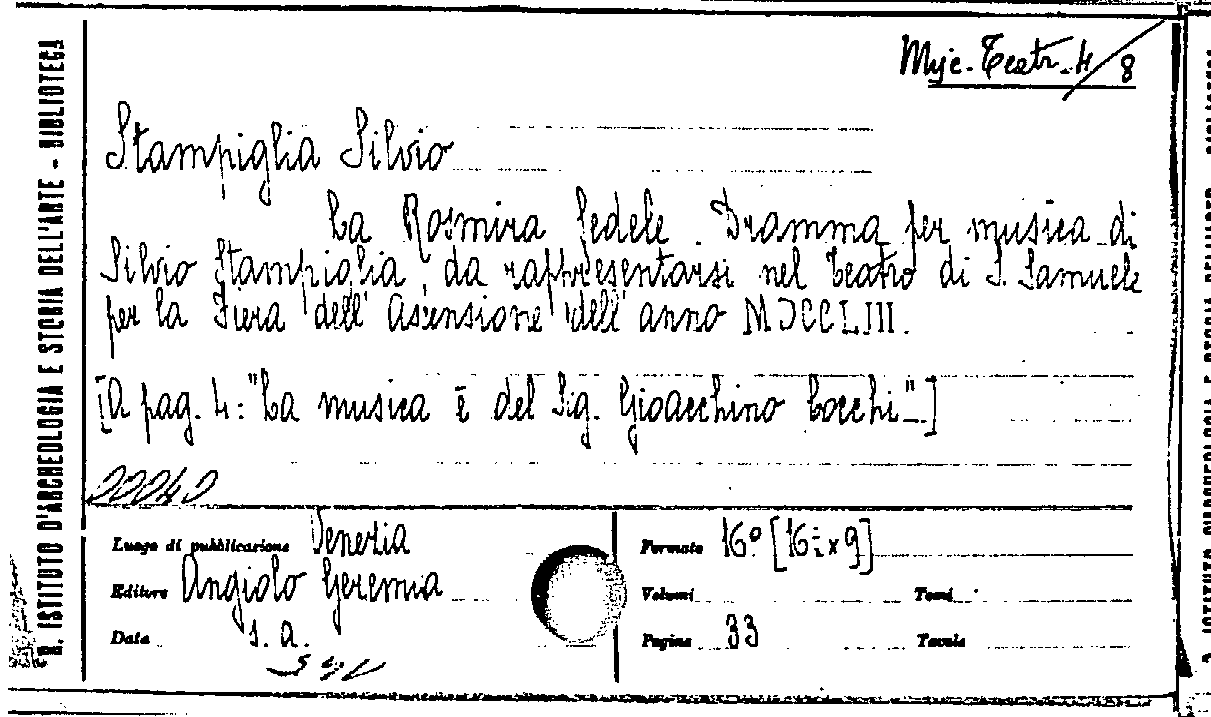 R. ISTITUTO D'ARCHEOLOGIA E STORIA DELL'ARTE - BIBLIOTECA
Stampiglia Silvio
La Rosmira fedele. Dramma per musica di
Silvio Stampiglia, da rappresentarsi nel Teatro di S. Samuele
per la Fiera dell'Ascensione dell'anno MDCCLIII.
[A pag. 4: "La musica è del Sig. Gioacchino Cocchi".]
Luogo di pubblicazione Venezia
Editore Angiolo Geremia
Data s. a.
Formato 16º [16 x 9]
Volumi
Tomi
Pagine 33
Tavole